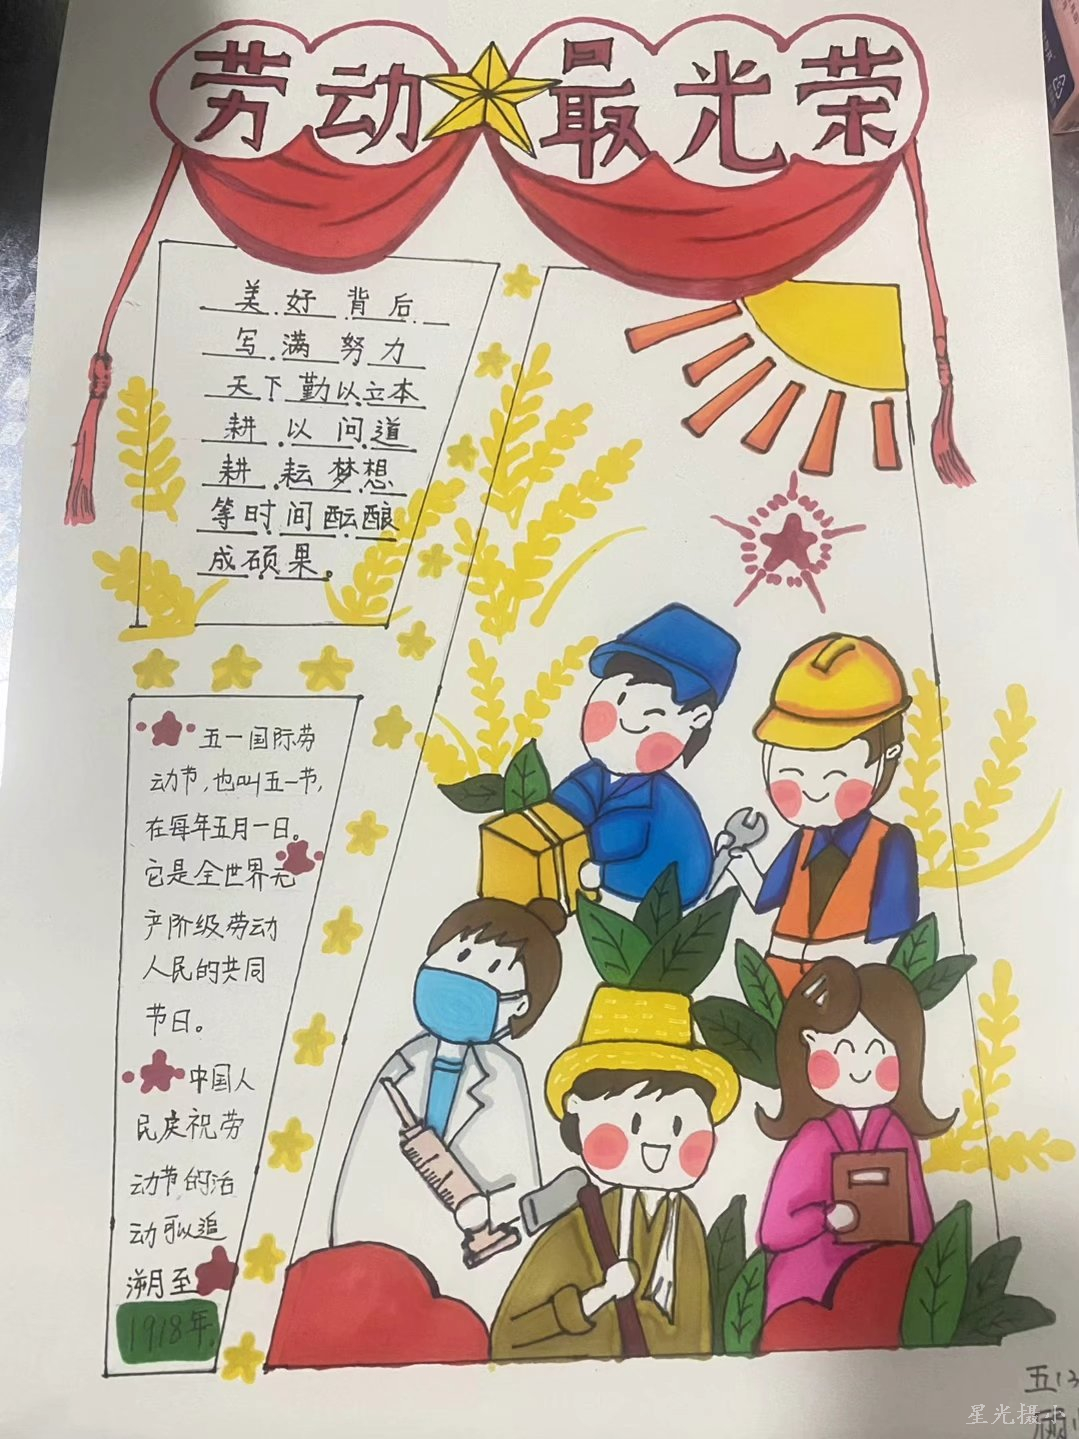 劳动最光荣
美好背后
写满努力
天下勤以立本
耕以问道
耕耘梦想
等时间酝酿
成硕果。
五一国际劳
动节,也叫五一节,
在每年五月一日。
它是全世界无
产阶级劳动
人民的共同
节日。
中国人
民庆祝劳
动节的活
动可以追
溯至
1918年
五13
星光摄